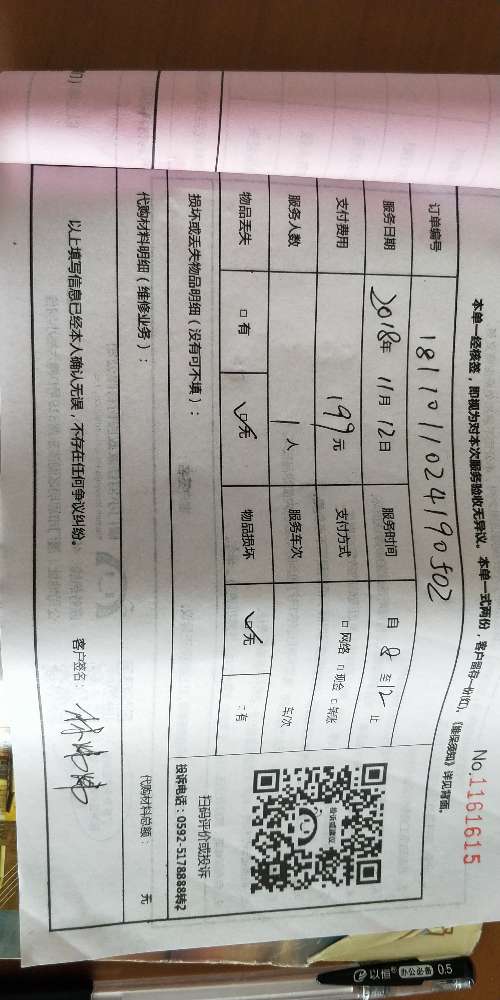 No.1161615
本单一经核签，即视为对本次服务验收无异议。本单一式两份，客户留存一份(红)，《维保须知》详见背面。
订单编号 181101102419 0502
服务日期 2018年 11月 12日 服务时间 自 8 至 12 止
支付费用 199元 支付方式 □ 网络 □ 现金 □ 转账
服务人数 1 人 服务车次 车/次
物品丢失 □ 有 ☑无 物品损坏 ☑无 □ 有
损坏或丢失物品明细（没有可不填）：
扫码评价或投诉
投诉电话：0592-5178888转2
投诉或建议
代购材料明细（维修业务）：
代购材料总额： 元
以上填写信息已经本人确认无误，不存在任何争议纠纷。 客户签名：
以恒 办公必备 0.5